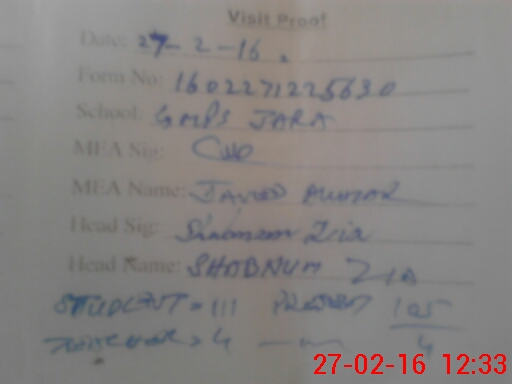 Visit Proof
Date: 27-2-16.
Form No: 1602271225630
School: GMPS JARA
MEA Sig:
MEA Name: JAVED
Head Sig: Shabnam Zia
Head Name: SHABNUM ZIA
STUDENT = 111 PRESENT 105
TEACHER = 4 4
27-02-16 12:33